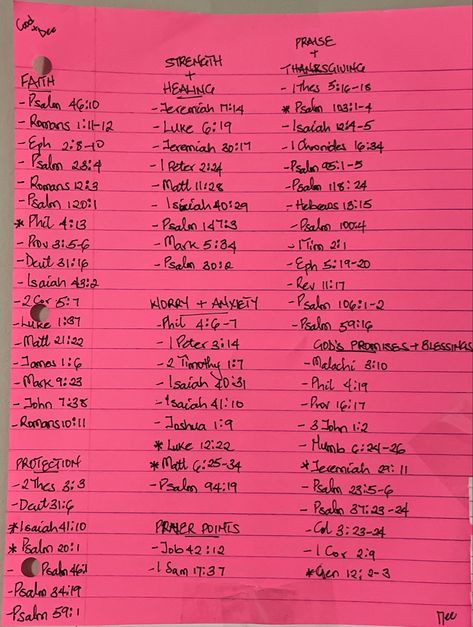 God
x Dee
FAITH
- Psalm 46:10
- Romans 1:11-12
- Eph 2:8-10
- Psalm 23:4
- Romans 12:3
- Psalm 120:1
* Phil 4:13
- Prov 3:5-6
- Deut 31:16
- Isaiah 43:2
- 2 Cor 5:7
- Luke 1:37
- Matt 21:22
- James 1:6
- Mark 9:23
- John 7:38
- Romans 10:11
PROTECTION
- 2 Thes 3:3
- Deut 31:6
* Isaiah 41:10
* Psalm 20:1
- Psalm 46:1
- Psalm 34:19
- Psalm 59:1
STRENGTH
+
HEALING
- Jeremiah 17:14
- Luke 6:19
- Jeremiah 30:17
- 1 Peter 2:24
- Matt 11:28
- Isaiah 40:29
- Psalm 147:3
- Mark 5:34
- Psalm 30:2
WORRY + ANXIETY
- Phil 4:6-7
- 1 Peter 3:14
- 2 Timothy 1:7
- Isaiah 40:31
- Isaiah 41:10
- Joshua 1:9
* Luke 12:22
* Matt 6:25-34
- Psalm 94:19
PRAYER POINTS
- Job 42:12
- 1 Sam 17:37
PRAISE
+
THANKSGIVING
- 1 Thes 5:16-18
* Psalm 103:1-4
- Isaiah 12:4-5
- 1 Chronicles 16:34
- Psalm 95:1-5
- Psalm 118:24
- Hebrews 13:15
- Psalm 100:4
- 1 Tim 2:1
- Eph 5:19-20
- Rev 11:17
- Psalm 106:1-2
- Psalm 59:16
GOD'S PROMISES + BLESSINGS
- Malachi 3:10
- Phil 4:19
- Prov 16:17
- 3 John 1:2
- Numb 6:24-26
* Jeremiah 29:11
- Psalm 23:5-6
- Psalm 37:23-24
- Col 3:23-24
- 1 Cor 2:9
* Gen 12:2-3